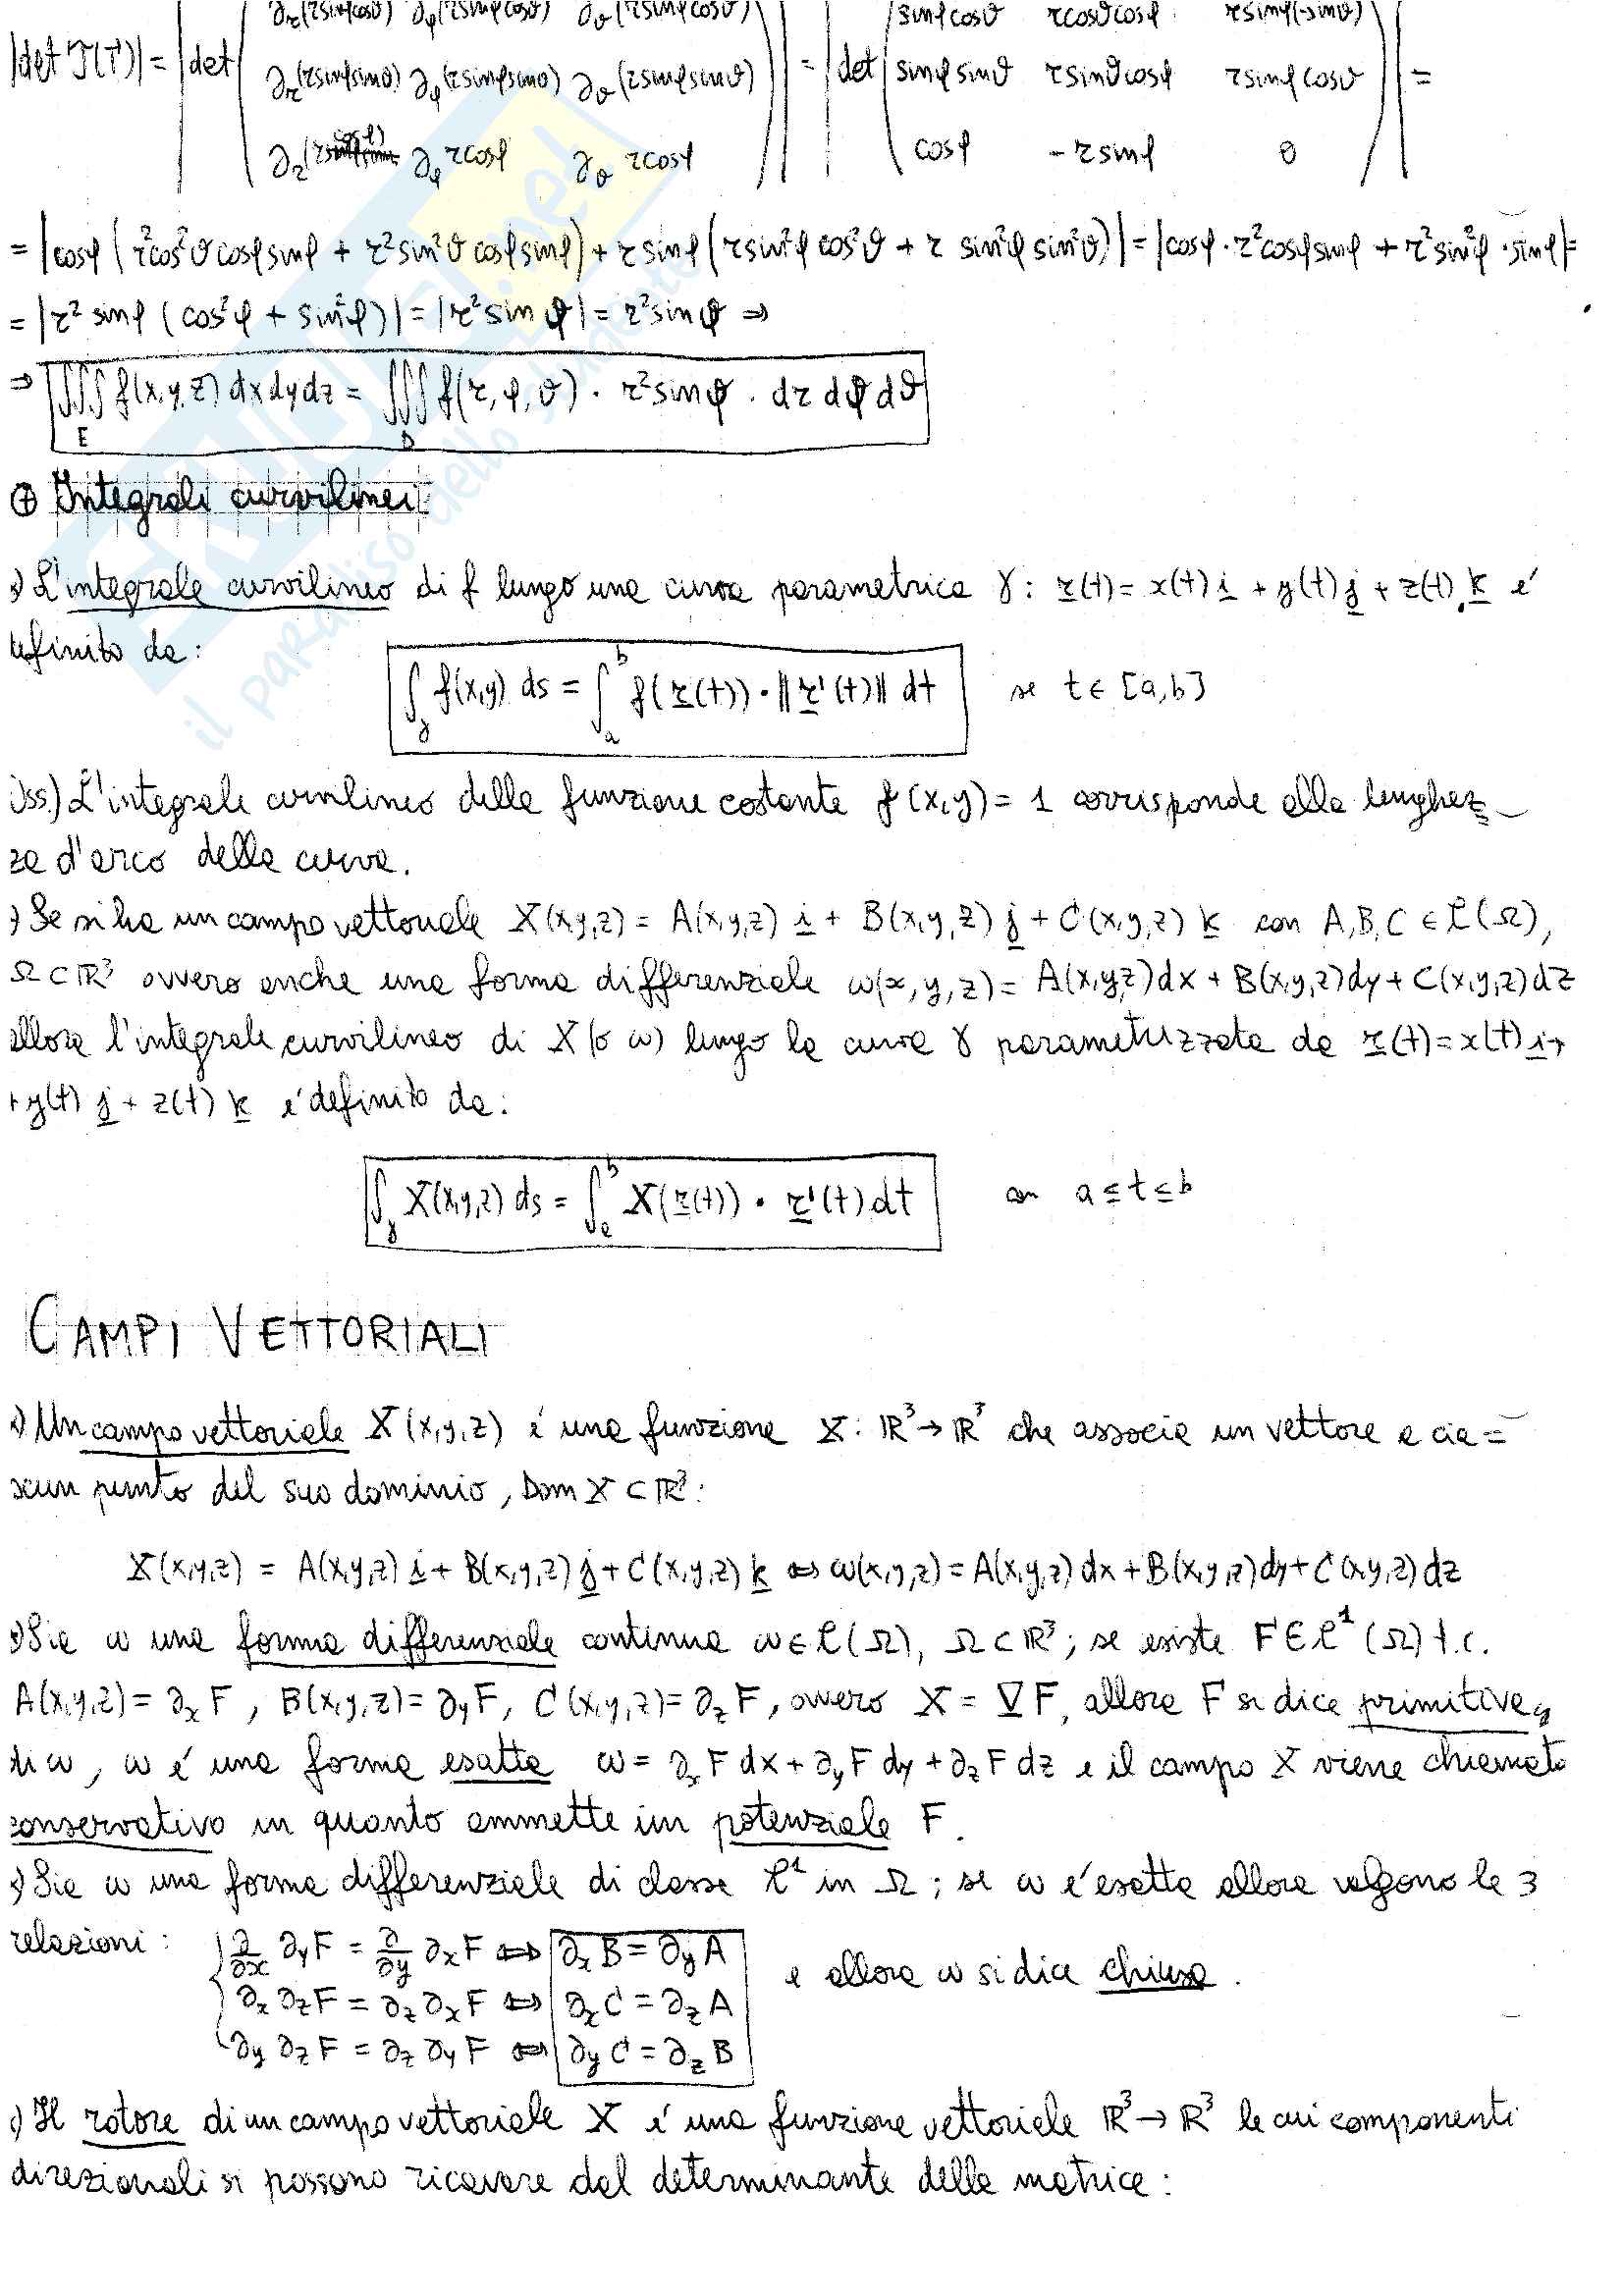 ∂r(rsinφcosϑ) ∂φ(rsinφcosϑ) ∂ϑ(rsinφcosϑ) sinφcosϑ rcosϑcosφ rsinφ(-sinϑ)
|det J(T)| = |det( ∂r(rsinφsinϑ) ∂φ(rsinφsinϑ) ∂ϑ(rsinφsinϑ) )| = |det( sinφsinϑ rsinϑcosφ rsinφcosϑ )| =
∂r(rcosφ) ∂φ rcosφ ∂ϑ rcosφ cosφ -rsinφ 0
= |cosφ(r²cos²ϑcosφsinφ + r²sin²ϑcosφsinφ) + rsinφ(rsin²φcos²ϑ + r sin²φsin²ϑ)| = |cosφ·r²cosφsinφ + r²sin²φ·sinφ| =
= |r² sinφ (cos²φ + sin²φ)| = |r²sinφ| = r²sinφ ⇒
⇒ ∭_E f(x,y,z) dxdydz = ∭_D f(r,φ,ϑ) · r²sinφ · dr dφ dϑ
⊕ Integrali curvilinei
) L'integrale curvilineo di f lungo una curva parametrica γ: r(t) = x(t) i + y(t) j + z(t) k é
efinito da:
∫_γ f(x,y) ds = ∫_a^b f(r(t)) · ||r'(t)|| dt se t ∈ [a,b]
Oss.) L'integrale curvilineo della funzione costante f(x,y) = 1 corrisponde alla lunghez-
za d'arco della curva.
) Se si ha un campo vettoriale X(x,y,z) = A(x,y,z) i + B(x,y,z) j + C(x,y,z) k con A,B,C ∈ C(Ω),
Ω ⊂ ℝ³ ovvero anche una forma differenziale ω(x,y,z) = A(x,y,z)dx + B(x,y,z)dy + C(x,y,z)dz
allora l'integrale curvilineo di X (o ω) lungo la curva γ parametrizzata da r(t) = x(t) i +
+ y(t) j + z(t) k é definito da:
∫_γ X(x,y,z) ds = ∫_a^b X(r(t)) · r'(t) dt con a ≤ t ≤ b
CAMPI VETTORIALI
) Un campo vettoriale X(x,y,z) é una funzione X: ℝ³ → ℝ³ che associa un vettore a cia=
scun punto del suo dominio, Dom X ⊂ ℝ³:
X(x,y,z) = A(x,y,z) i + B(x,y,z) j + C(x,y,z) k ⇔ ω(x,y,z) = A(x,y,z) dx + B(x,y,z) dy + C(x,y,z) dz
) Sia ω una forma differenziale continua ω ∈ C(Ω), Ω ⊂ ℝ³; se esiste F ∈ C¹(Ω) t.c.
A(x,y,z) = ∂xF, B(x,y,z) = ∂yF, C(x,y,z) = ∂zF, ovvero X = ∇F, allora F si dice primitiva
di ω, ω é una forma esatta ω = ∂xF dx + ∂yF dy + ∂zF dz e il campo X viene chiamato
conservativo in quanto ammette un potenziale F.
) Sia ω una forma differenziale di classe C¹ in Ω; se ω é esatta allora valgono le 3
relazioni: { ∂/∂x ∂yF = ∂/∂y ∂xF ⇔ ∂xB = ∂yA
∂x ∂zF = ∂z ∂xF ⇔ ∂xC = ∂zA e allora ω si dice chiusa.
∂y ∂zF = ∂z ∂yF ⇔ ∂yC = ∂zB
) Il rotore di un campo vettoriale X é una funzione vettoriale ℝ³ → ℝ³ le cui componenti
direzionali si possono ricavare dal determinante della matrice: